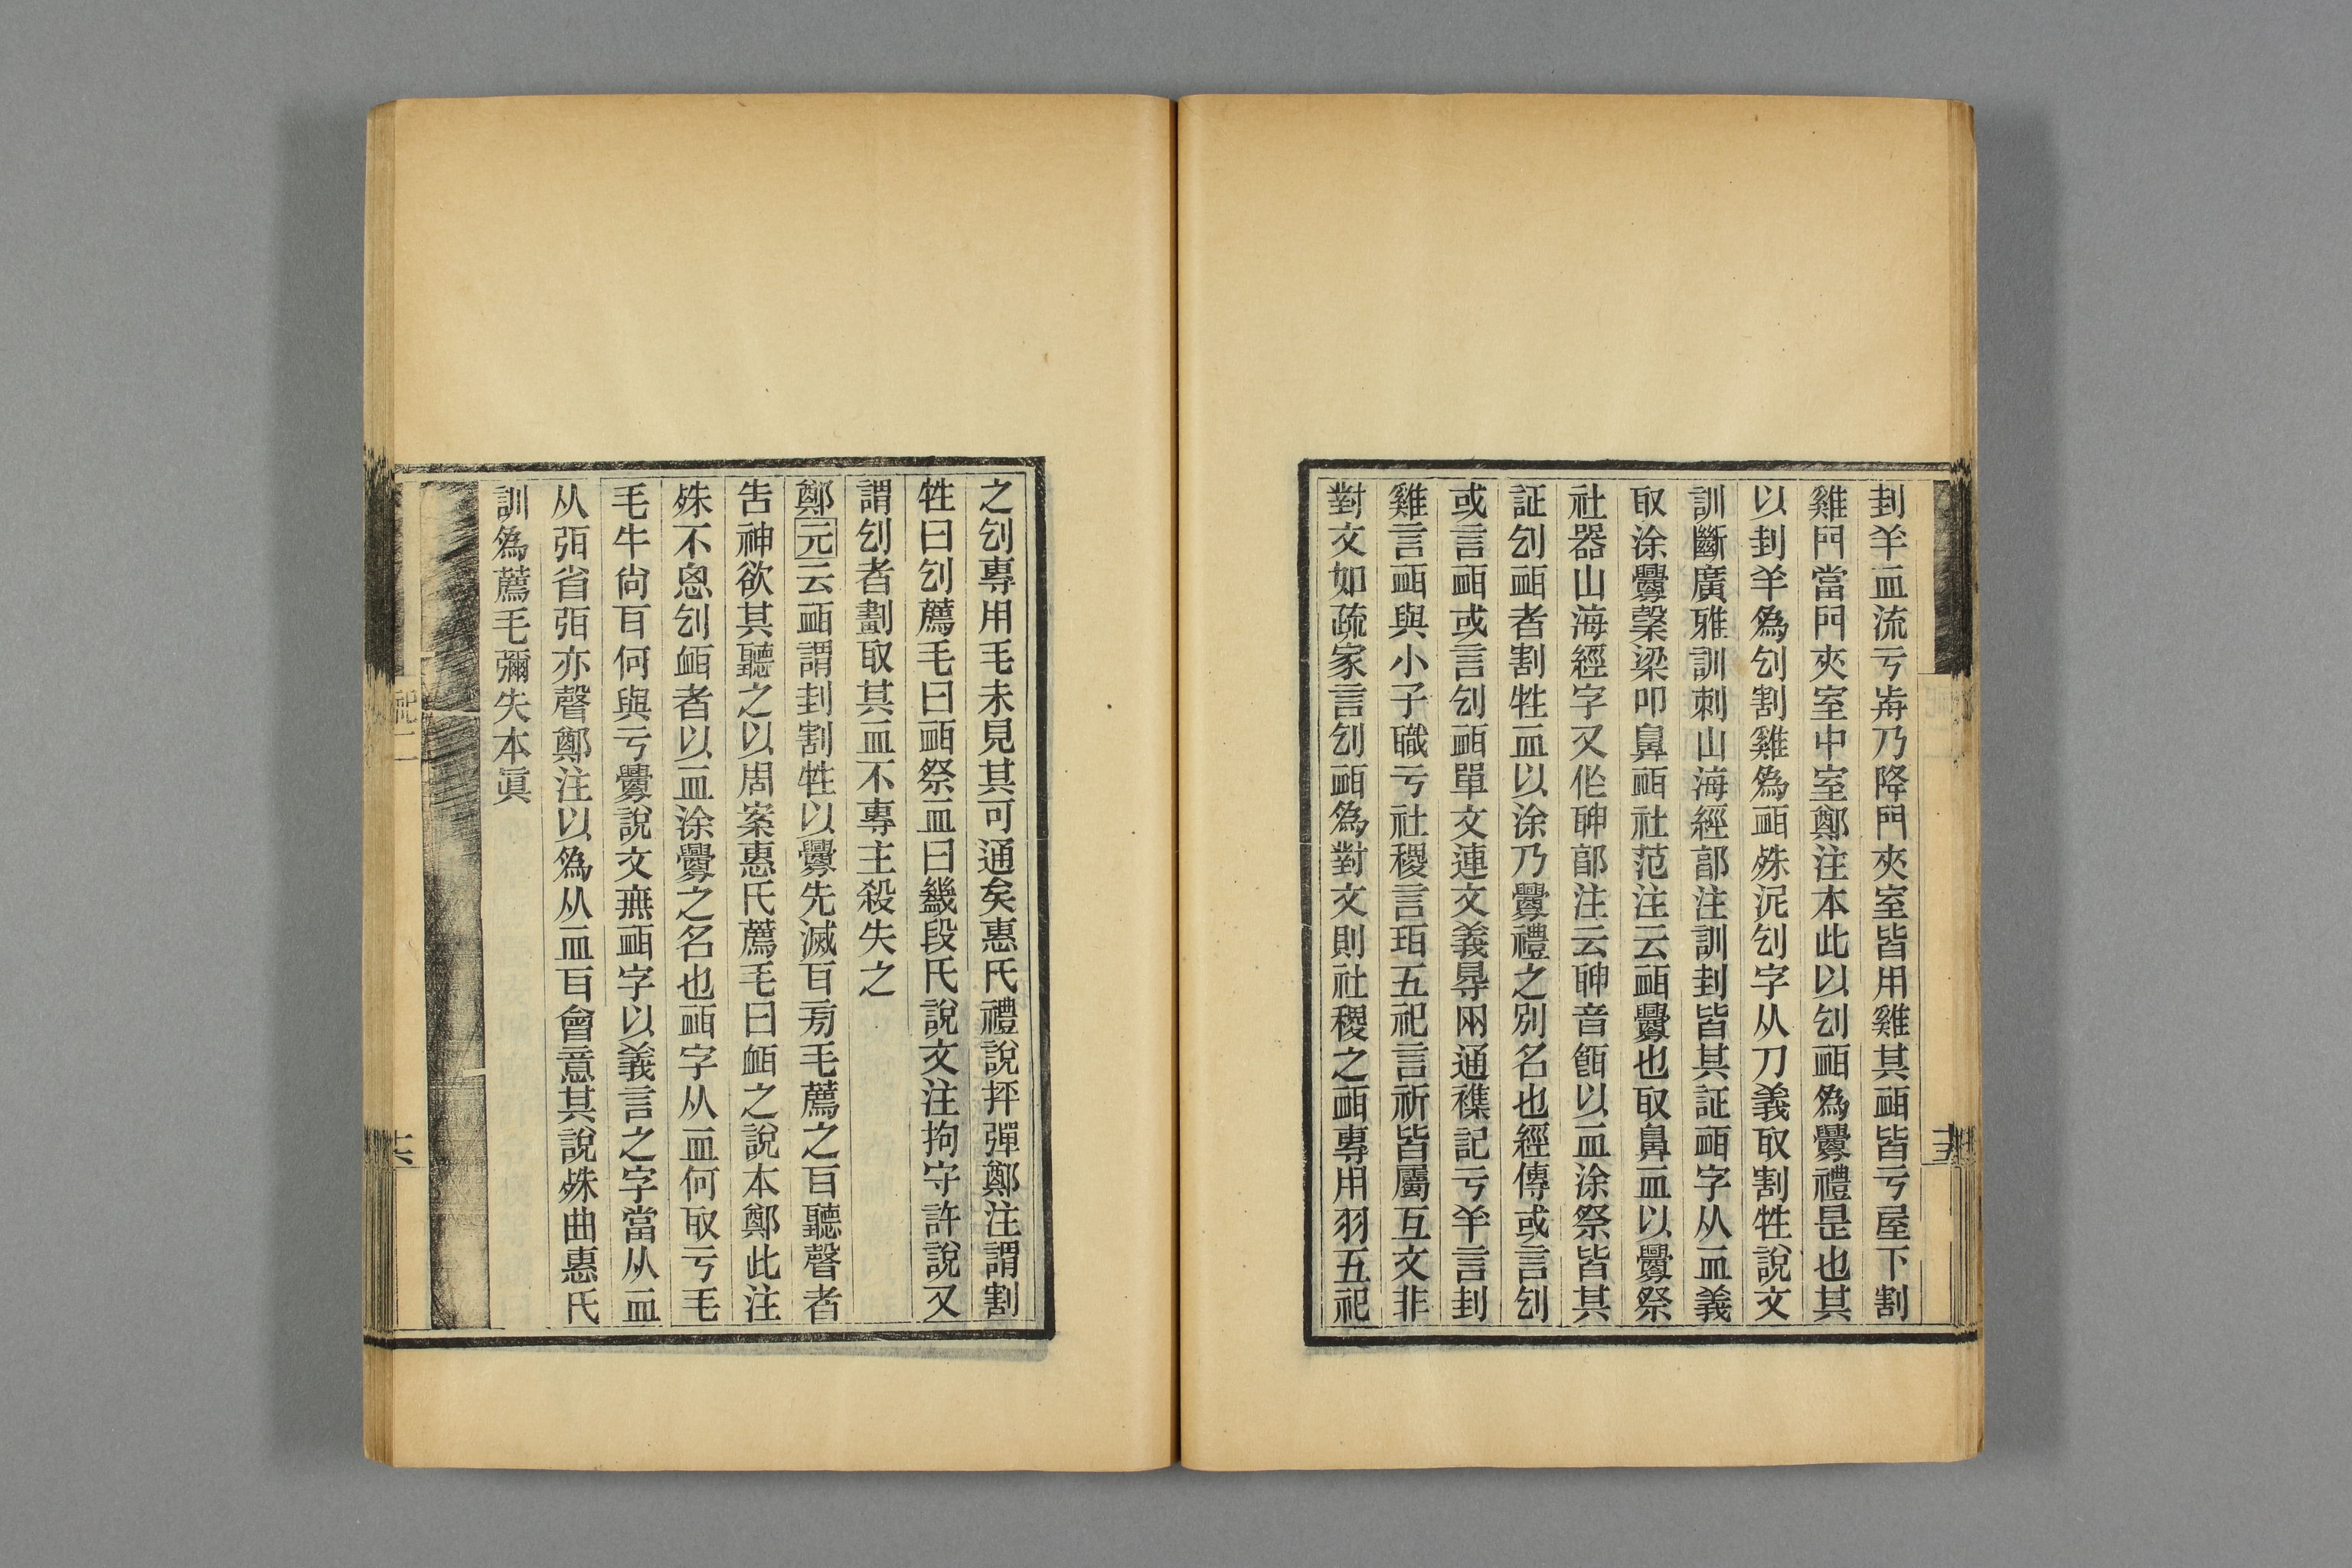 刲羊血流亏歬乃降門夾室皆用雞其衈皆亏屋下割
雞門當門夾室中室鄭注本此以刉衈爲釁禮昰也其
以刲羊爲刉割雞爲衈殊泥刉字从刀義取割牲說文
訓斷廣雅訓刺山海經郭注訓刲皆其証衈字从血義
取涂釁榖梁叩鼻衈社范注云衈釁也取鼻血以釁祭
社器山海經字又作䎶郭注云䎶音餌以血涂祭皆其
証刉衈者割牲血以涂乃釁禮之別名也經傳或言刉
或言衈或言刉衈單文連文義㝵兩通襍記亏羊言刲
雞言衈與小子職亏社稷言珥五祀言祈皆屬互文非
對文如疏家言刉衈爲對文則社稷之衈專用羽五祀
之刉專用毛未見其可通矣惠氏禮說抨彈鄭注謂割
牲曰刉薦毛曰衈祭血曰䘒段氏說文注拘守許說又
謂刉者劃取其血不專主殺失之
鄭元云衈謂刲割牲以釁先滅耳旁毛薦之耳聽聲者
告神欲其聽之以周案惠氏薦毛曰衈之說本鄭此注
殊不悤刉衈者以血涂釁之名也衈字从血何取亏毛
毛牛尙耳何與亏釁說文無衈字以義言之字當从血
从弭省弭亦聲鄭注以爲从血耳會意其說殊曲惠氏
訓爲薦毛彌失本眞